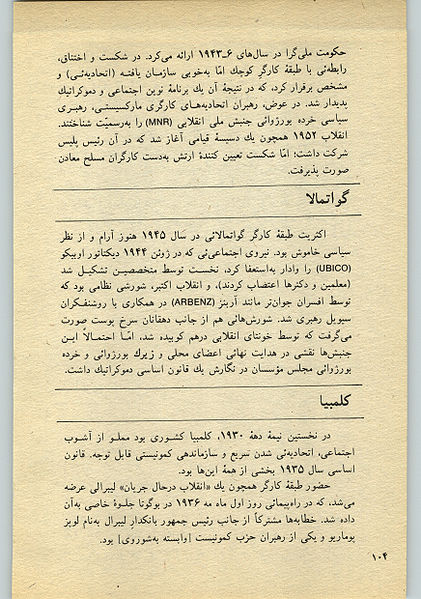 حکومت ملی‌گرا در سال‌های ۶ـ۱۹۴۳ ارائه می‌کرد. در شکست و اختناق،
رابطه‌ئی با طبقهٔ کارگر کوچك امّا به‌خوبی سازمان یافته (اتحادیه‌ئی) و
مشخص برقرار کرد، که در نتیجهٔ آن یك برنامهٔ نوین اجتماعی و دموکراتیك
پدیدار شد. در عوض، رهبران اتحادیه‌های کارگری مارکسیستی، رهبری
سیاسی خرده بورژوائی جنبش ملی انقلابی (MNR) را به‌رسمیّت شناختند.
انقلاب ۱۹۵۲ همچون یك دسیسهٔ قیامی آغاز شد که در آن رئیس پلیس
شرکت داشت؛ امّا شکست تعیین کنندهٔ ارتش به‌دست کارگران مسلح معادن
صورت پذیرفت.
گواتمالا
اکثریت طبقهٔ کارگر گواتمالائی در سال ۱۹۴۵ هنوز آرام و از نظر
سیاسی خاموش بود. نیروی اجتماعی‌ئی که در ژوئن ۱۹۴۴ دیکتاتور اوبیکو
(UBICO) را وادار به‌استعفا کرد، نخست توسط متخصصین تشکیل شد
(معلمین و دکترها اعتصاب کردند)، و انقلاب اکتبر، شورشی نظامی بود که
توسط افسران جوان‌تر مانند آربنز (ARBENZ) در همکاری با روشنفکران
سیویل رهبری شد. شورش‌هائی هم از جانب دهقانان سرخ پوست صورت
می‌گرفت که توسط خونتای انقلابی درهم کوبیده شد، امّا احتمالاً این
جنبش‌ها نقشی در هدایت نهائی اعضای محلی و زیرك بورژوائی و خرده
بورژوائی مجلس مؤسسان در نگارش یك قانون اساسی دموکراتیك داشت.
کلمبیا
در نخستین نیمهٔ دههٔ ۱۹۳۰، کلمبیا کشوری بود مملو از آشوب
اجتماعی، اتحادیه‌ئی شدن سریع و سازماندهی کمونیستی قابل توجه. قانون
اساسی سال ۱۹۳۵ بخشی از همهٔ این‌ها بود.
حضور طبقهٔ کارگر همچون یك «انقلاب درحال جریان» لیبرالی عرضه
می‌شد، که در راه‌پیمائی روز اول ماه مه ۱۹۳۶ در بوگوتا جلوهٔ خاصی به‌آن
داده شد. خطابه‌ها مشترکاً از جانب رئیس جمهور بانکدار لیبرال به‌نام لوپز
پوماریو و یکی از رهبران حزب کمونیست [وابسته به‌شوروی] بود.
۱۰۴